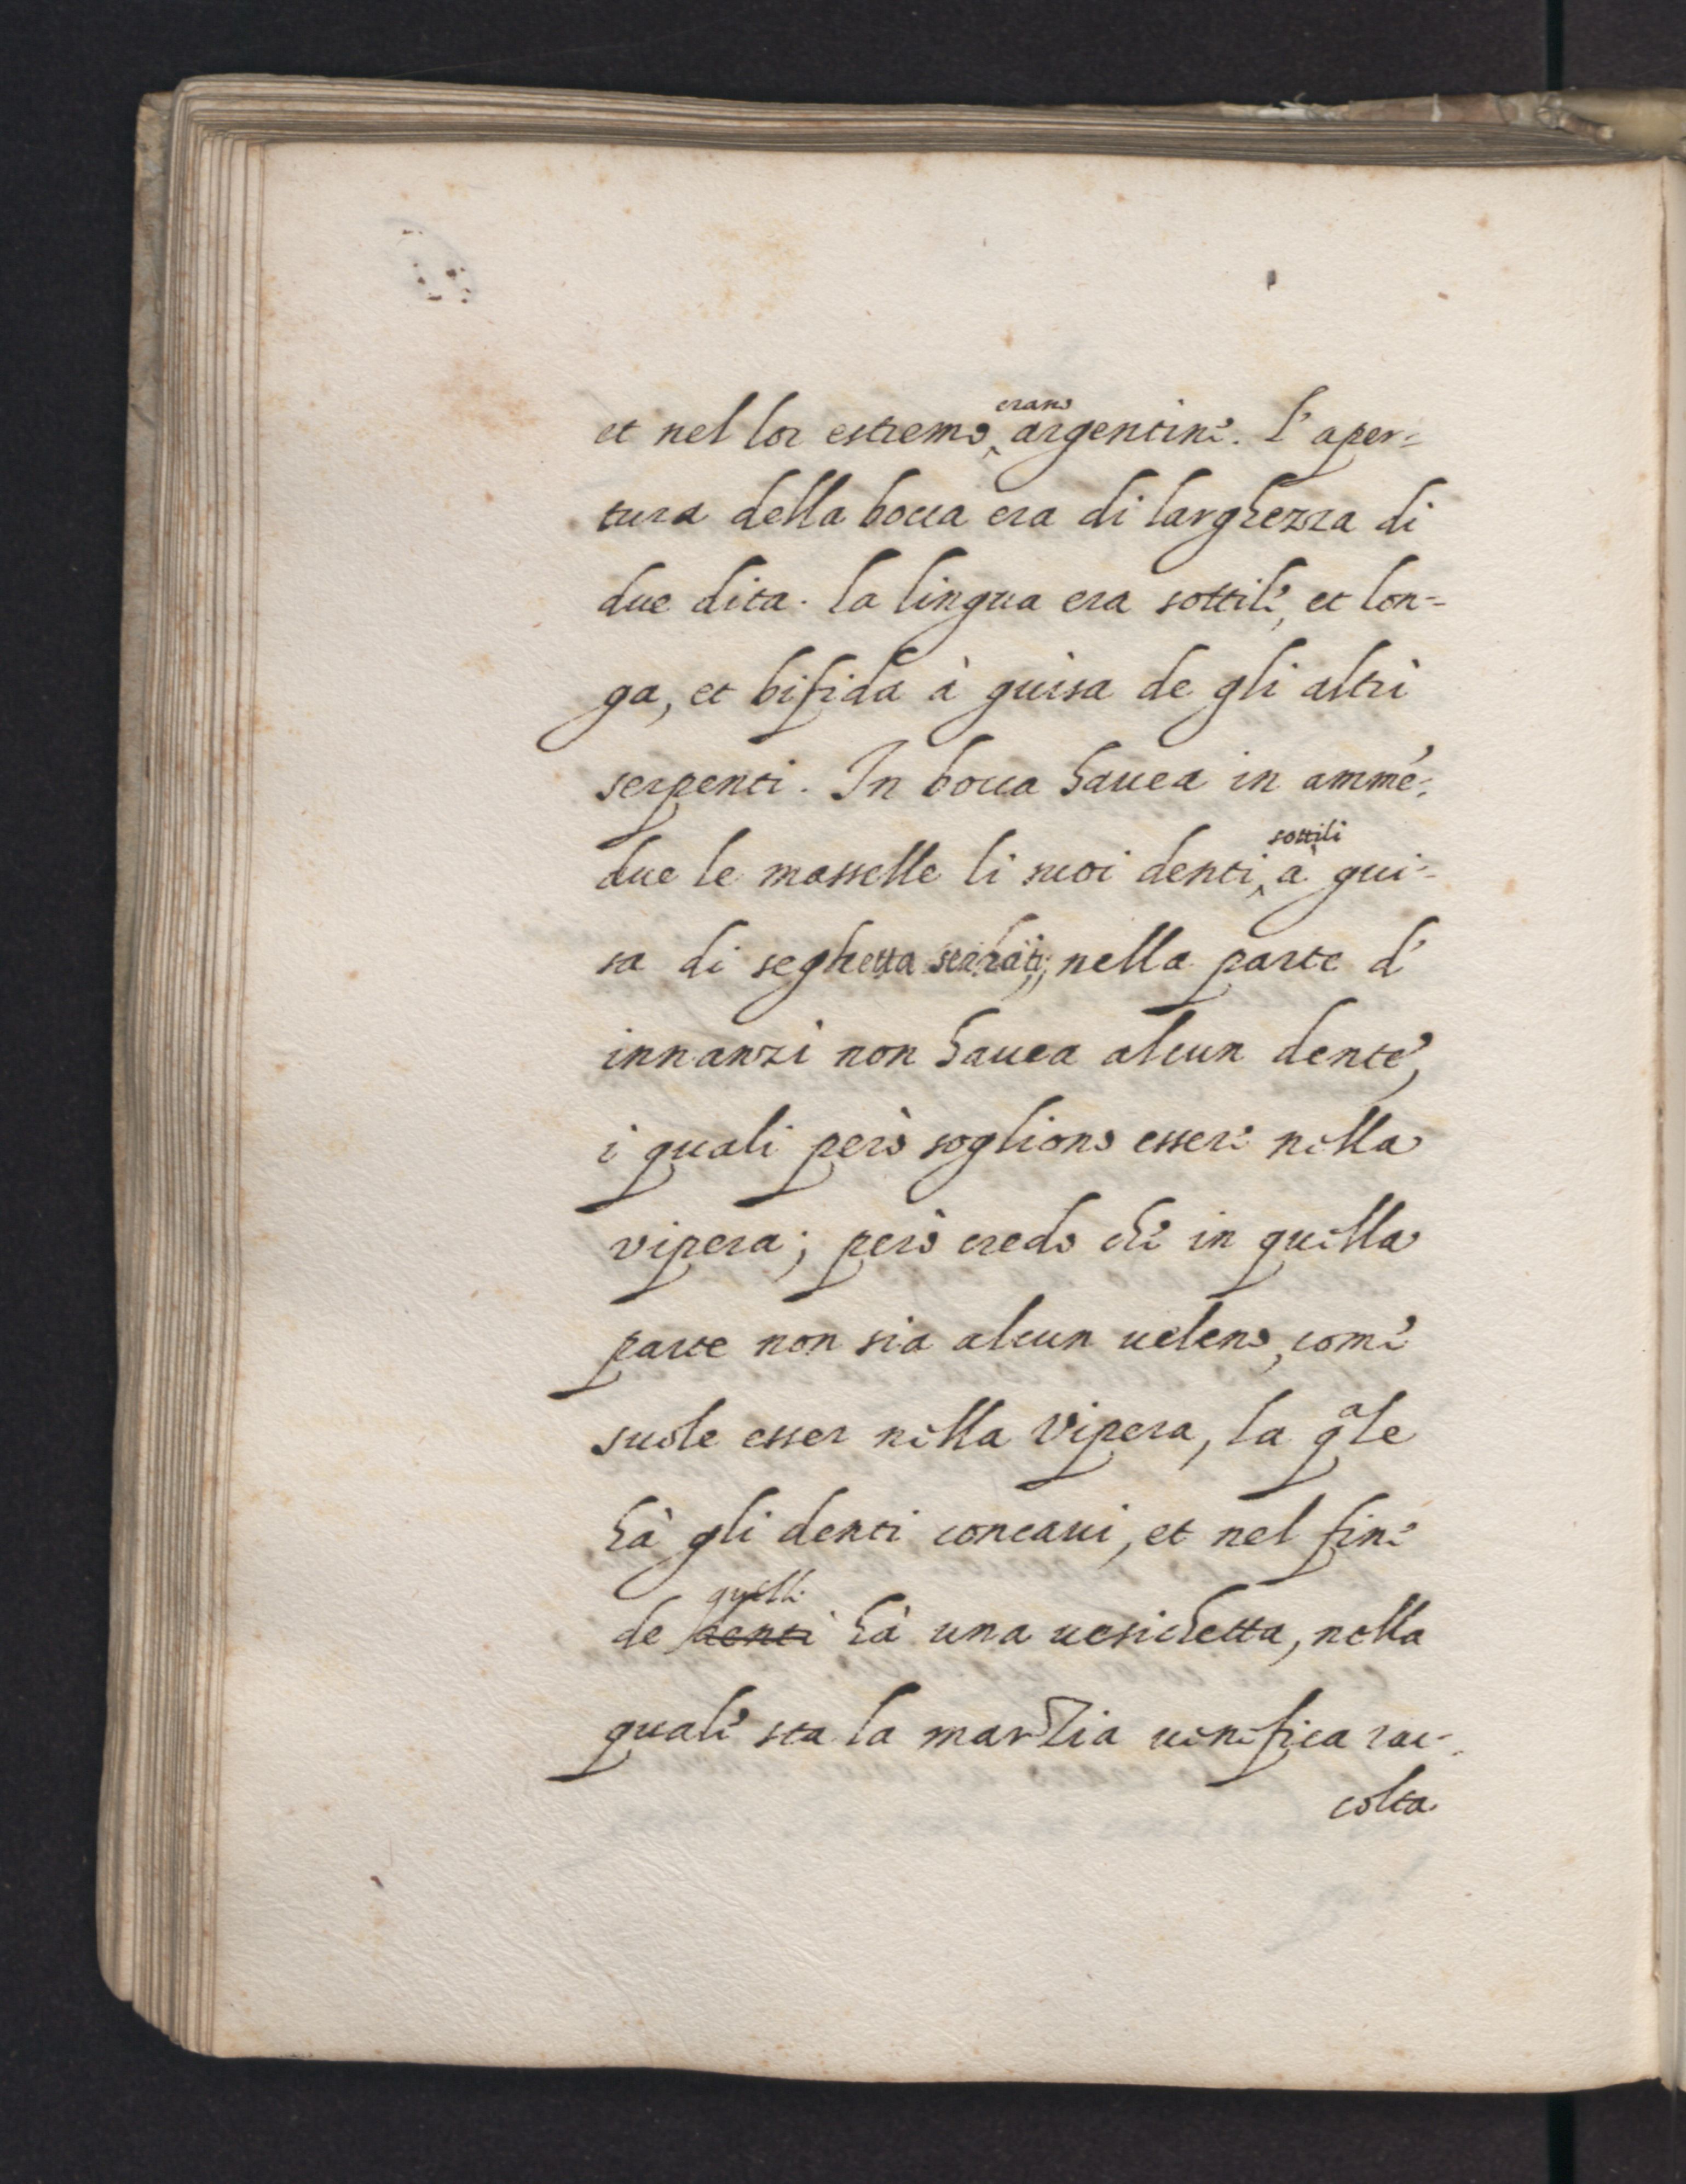 et nel lor estremo erano argentine. L'aper=
tura della bocca era di larghezza di
due dita. la lingua era sottile, et lon=
ga, et bifida à guisa de gli altri
serpenti. In bocca havea in amme=
due le masselle li suoi denti sottili à gui=
sa di seghetta serrati; nella parte d'
innanzi non havea alcun dente,
i quali però sogliono essere nella
vipera; però credo che in quella
parte non sia alcun veleno, come
suole esser nella Vipera, la qale
hà gli denti concaui, et nel fine
de denti quelli hà una uesichetta, nella
quale sta la marzia uenefica rac=
colta